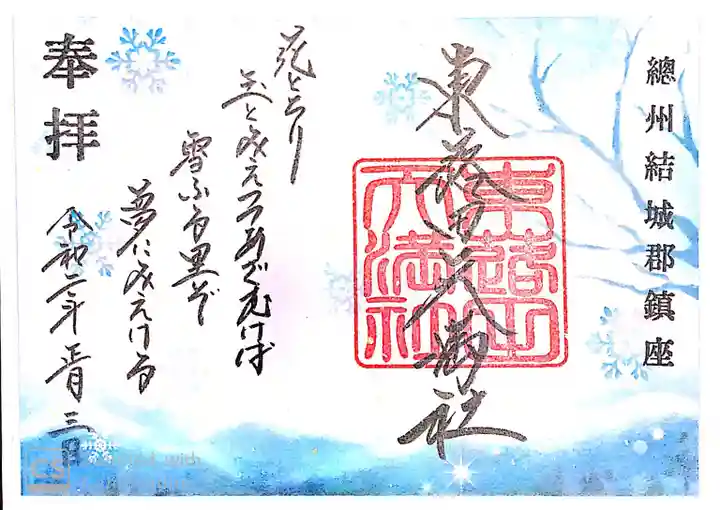 總州結城郡鎮座
東蕗田天満社
花とちり
玉と見えつつあざむけば
雪ふる里ぞ
夢に見えける
奉拝
令和二年一月三日